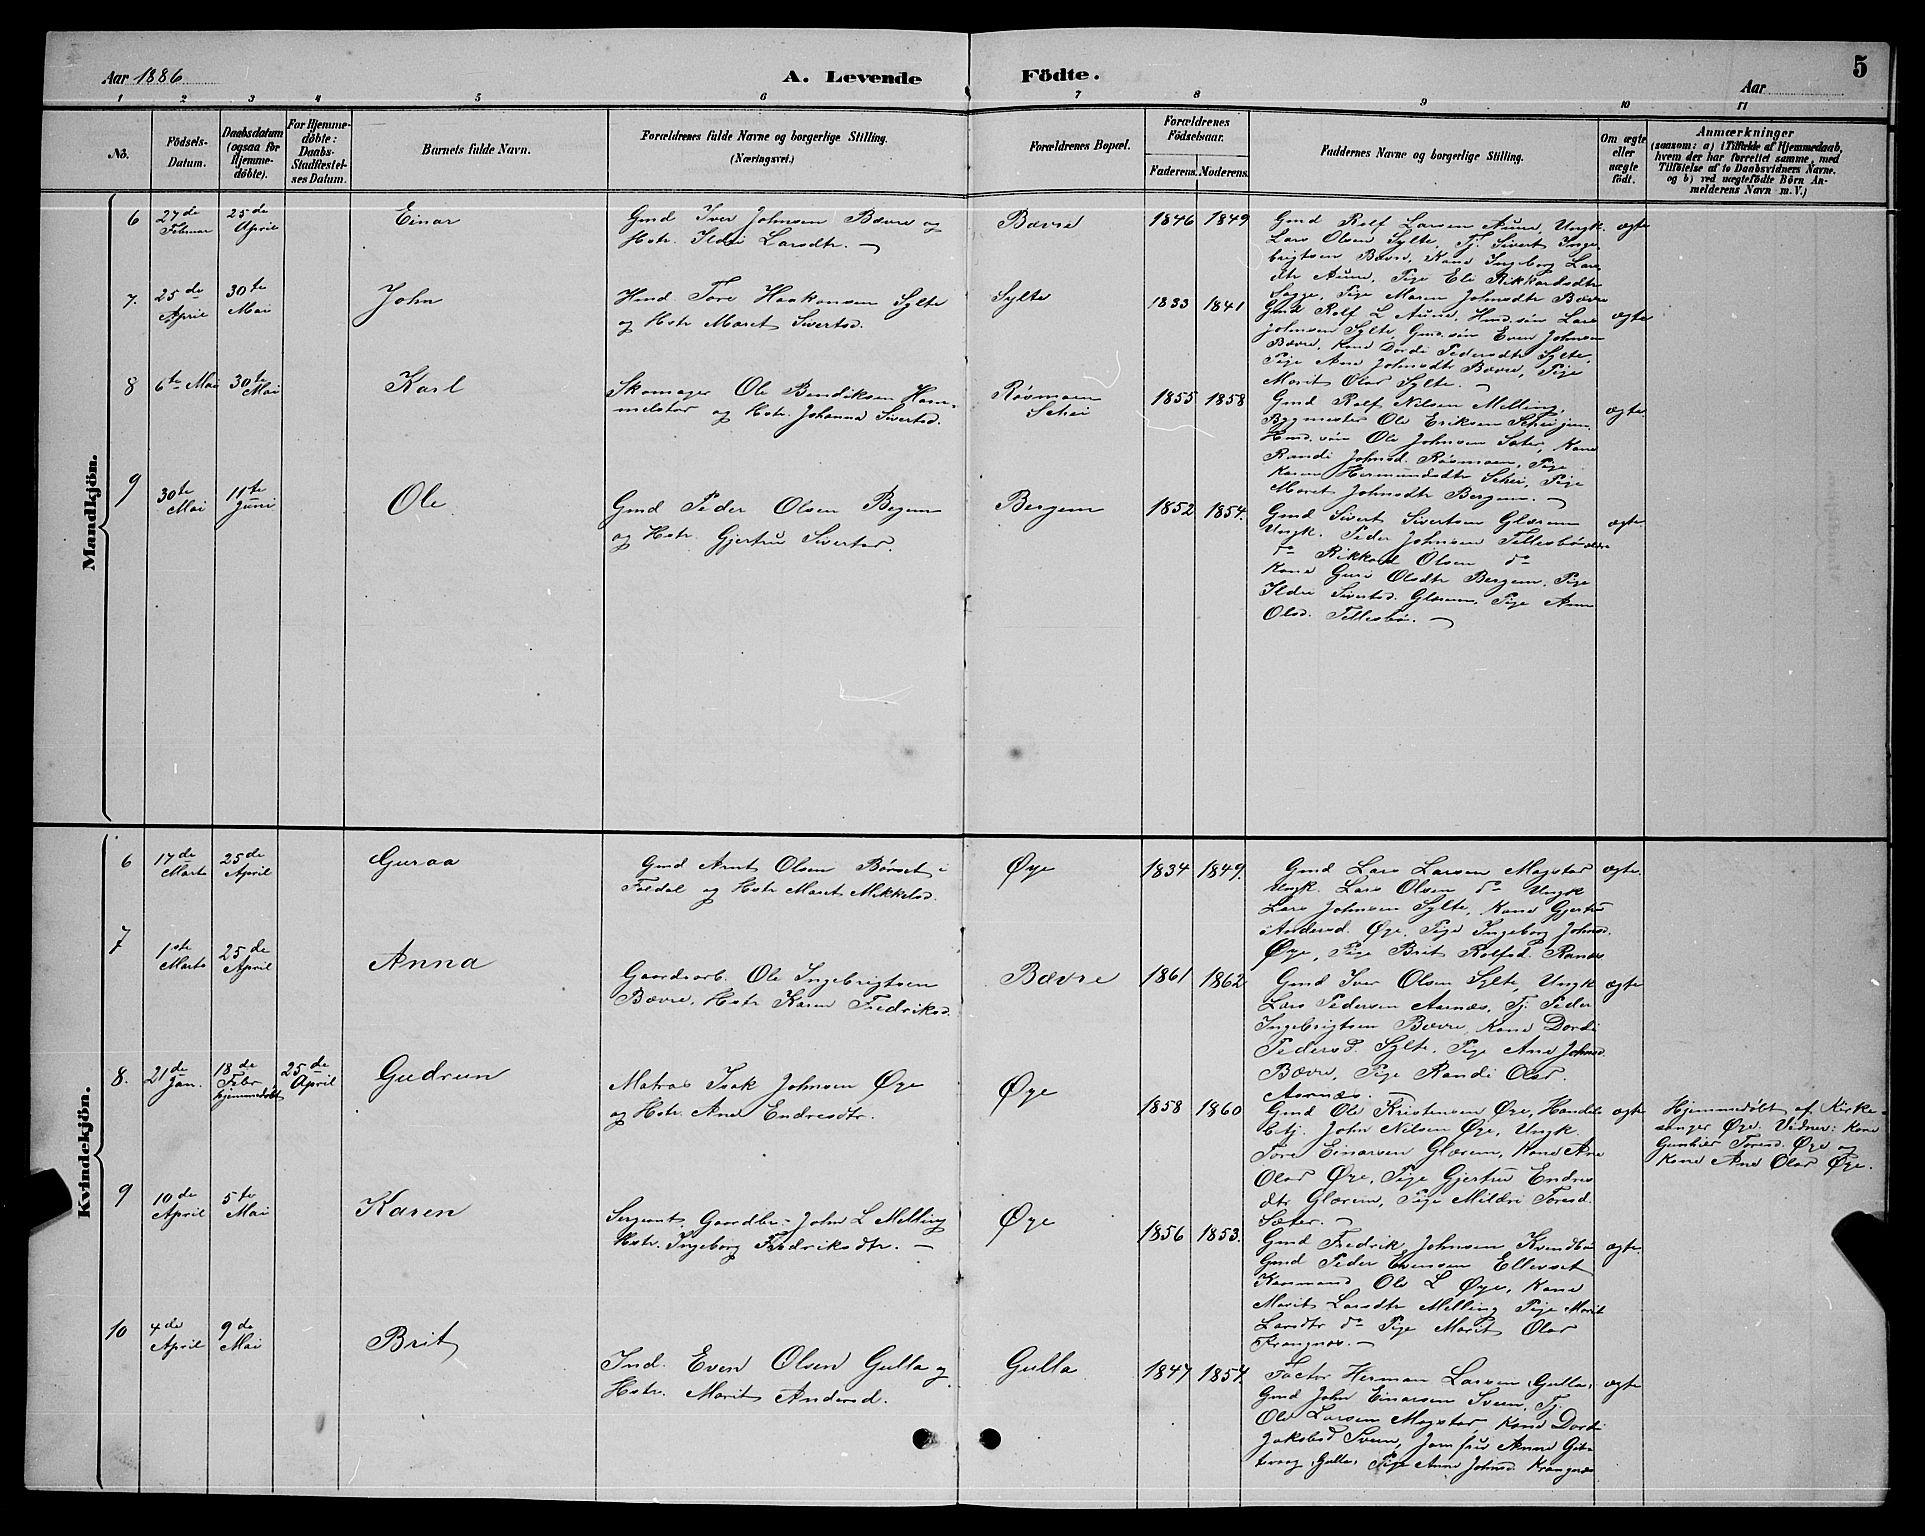 Aar 1886
A. Levende Födte.
Aar
5
1 2 3 4 5 6 7 8 9 10 11
No.
Födsels-
Datum.
Daabsdatum
(ogsaa for
Hjemme-
döbte).
For Hjemme-
döbte:
Daabs-
Stadfæstel-
ses Datum.
Barnets fulde Navn.
Forældrenes fulde Navne og borgerlige Stilling.
(Næringsvei.)
Forældrenes Bopæl.
Forældrenes
Födselsaar.
Faderens. Moderens.
Faddernes Navne og borgerlige Stilling.
Om ægte
eller
uægte
födt.
Anmærkninger
(saasom: a) i Tilfælde af Hjemmedaab,
hvem der har forrettet samme, med
Tilföielse af to Daabsvidners Navne.
og b) ved uægtefödte Börn An-
melderens Navn m. V.)
Mandkjön.
6
27de
Februar
25de
April
Einar
Gmd Iver Johnsen Bævre og
Hstr. Ildri Larsdtr.
Bævre
1846 1849
Gmd Rolf Larsen Aune, Ungk.
Lars Olsen Sylte, Tj. Sivert Inge
brigtsen Bævre, Kone Ingeborg Lars
dtr Aune, Pige Eli Rikkardsdtr
Sagge, Pige Maren Johnsdtr Bævre
ægte
7.
25de
April
30te
Mai
John
Hmd. Tore Haakonsen Sylte
og Hstr Maret Sivertsd.
Sylte
1833 1841
Gmd Rolf L Aune, Hmd. sön Lars
Johnsen Sylte, Gmd. sön Even Johnsen
Bævre, Kone Dordi Pedersdtr Sylte,
Pige Ane Johnsdtr Bævre, Pige
Marit Olsd Sylte.
ægte
8
6te Mai
30te
Mai
Karl
Skomager Ole Bendiksen Ham-
melstør og Hstr. Johanna Sivertsd.
Røsmoen
Schei
1855 1858
Gmd Rolf Nilsen Melling,
Bygmester Ole Eriksen Schei
Hmd. sön Ole Johnsen Sæter, Kone
Randi Johnsd. Røsmoen, Pige
Karen Hermundsdtr Schei, Pige
Maret Johnsdtr Bergem.
ægte.
9
30te
Mai
11te
Juni
Ole
Gmd Peder Olsen Begem
og Hstr. Gjertru Sivertsd.
Bergem
1852 1854.
Gmd Sivert Sivertsen Glærem
Ungk. Peder Johnsen Tellesbø
do Rikkard Olsen do
Kone Guri Olsdtr Bergem, Pige
Ildri Sivertsd. Glærem, Pige Ane
Olsd. Tellesbø.
ægte
Kvindekjön.
6
17de
Marts
25de
April
Guraa
Gmd Arnt Olsen Børset i
Foldal og Hstr Maret Mikkelsd.
Øye
1834 1849.
Gmd Lars Larsen Mogstad
Ungk. Lars Olsen do Ungk
Lars Johnsen Sylte, Kone Gjertru
Andersd. Øye, Pige Ingeborg Johnsd.
Øye, Pige Brit Rolfsd. Ranes
ægte.
7
1ste
Marts
25de
April
Anna
Gaardarb. Ole Ingebrigtsen
Bævre, Hstr Karen Fredriksd.
Bævre
1861 1862
Gmd Iver Olsen Sylte, Ungk
Lars Pedersen Aasnæs, Tj. Peder
Ingebrigtsen Bævre, Kone Dordi
Pedersd. Sylte, Pige Ane Johnsd.
Bævre, Pige Randi Olsd.
Aasnæs.
ægte
8.
21de
Jan.
18de
Febr
hjemmedøbt
25de
April
Gudrun
Matros Isak Johnsen Øye
og Hstr. Ane Endresdtr.
Øye
1858 1860
Gmd Ole Kristensen Øye, Handels
betj. John Nilsen Øye, Ungk.
Tore Einarsen Glærem, Kone Ane
Olsd Øye, Pige Gjertru Endres
dtr Glærem, Pige Mildri Toresd
Sæter.
ægte
Hjemmedøbt af Kirke-
sanger Øye. Vidner: Kone
Gunhild Toresd. Øye og
Kone Ane Olsd Øye.
9
10de
April
5te
Mai
Karen
Sergeant, Gaardbr. John L Melling
Hstr. Ingeborg Fredriksdtr.
Øye
1856 1853.
Gmd Fredrik Johnsen Kvendbø
Gmd Peder Evensen Ellevset
Kaarmand Ole L Øye, Kone
Marit Larsdtr Melling Pige Marit
Larsdtr do Pige Marit Olsd
Krangnæs.
ægte.
10
4de
April
9de
Mai
Brit
Ind. Even Olsen Gulla og
Hstr. Marit Andersd.
Gulla
1847 1854.
Factor Herman Larsen, Gulla,
Gmd John Einarsen Sveen, Tj.
Ole Larsen Mogstad, Kone Dordi
Jakobsd Sveen, Jomfru Anne
Gulla, Pige Anne Johnsd. Krangnæs
ægte